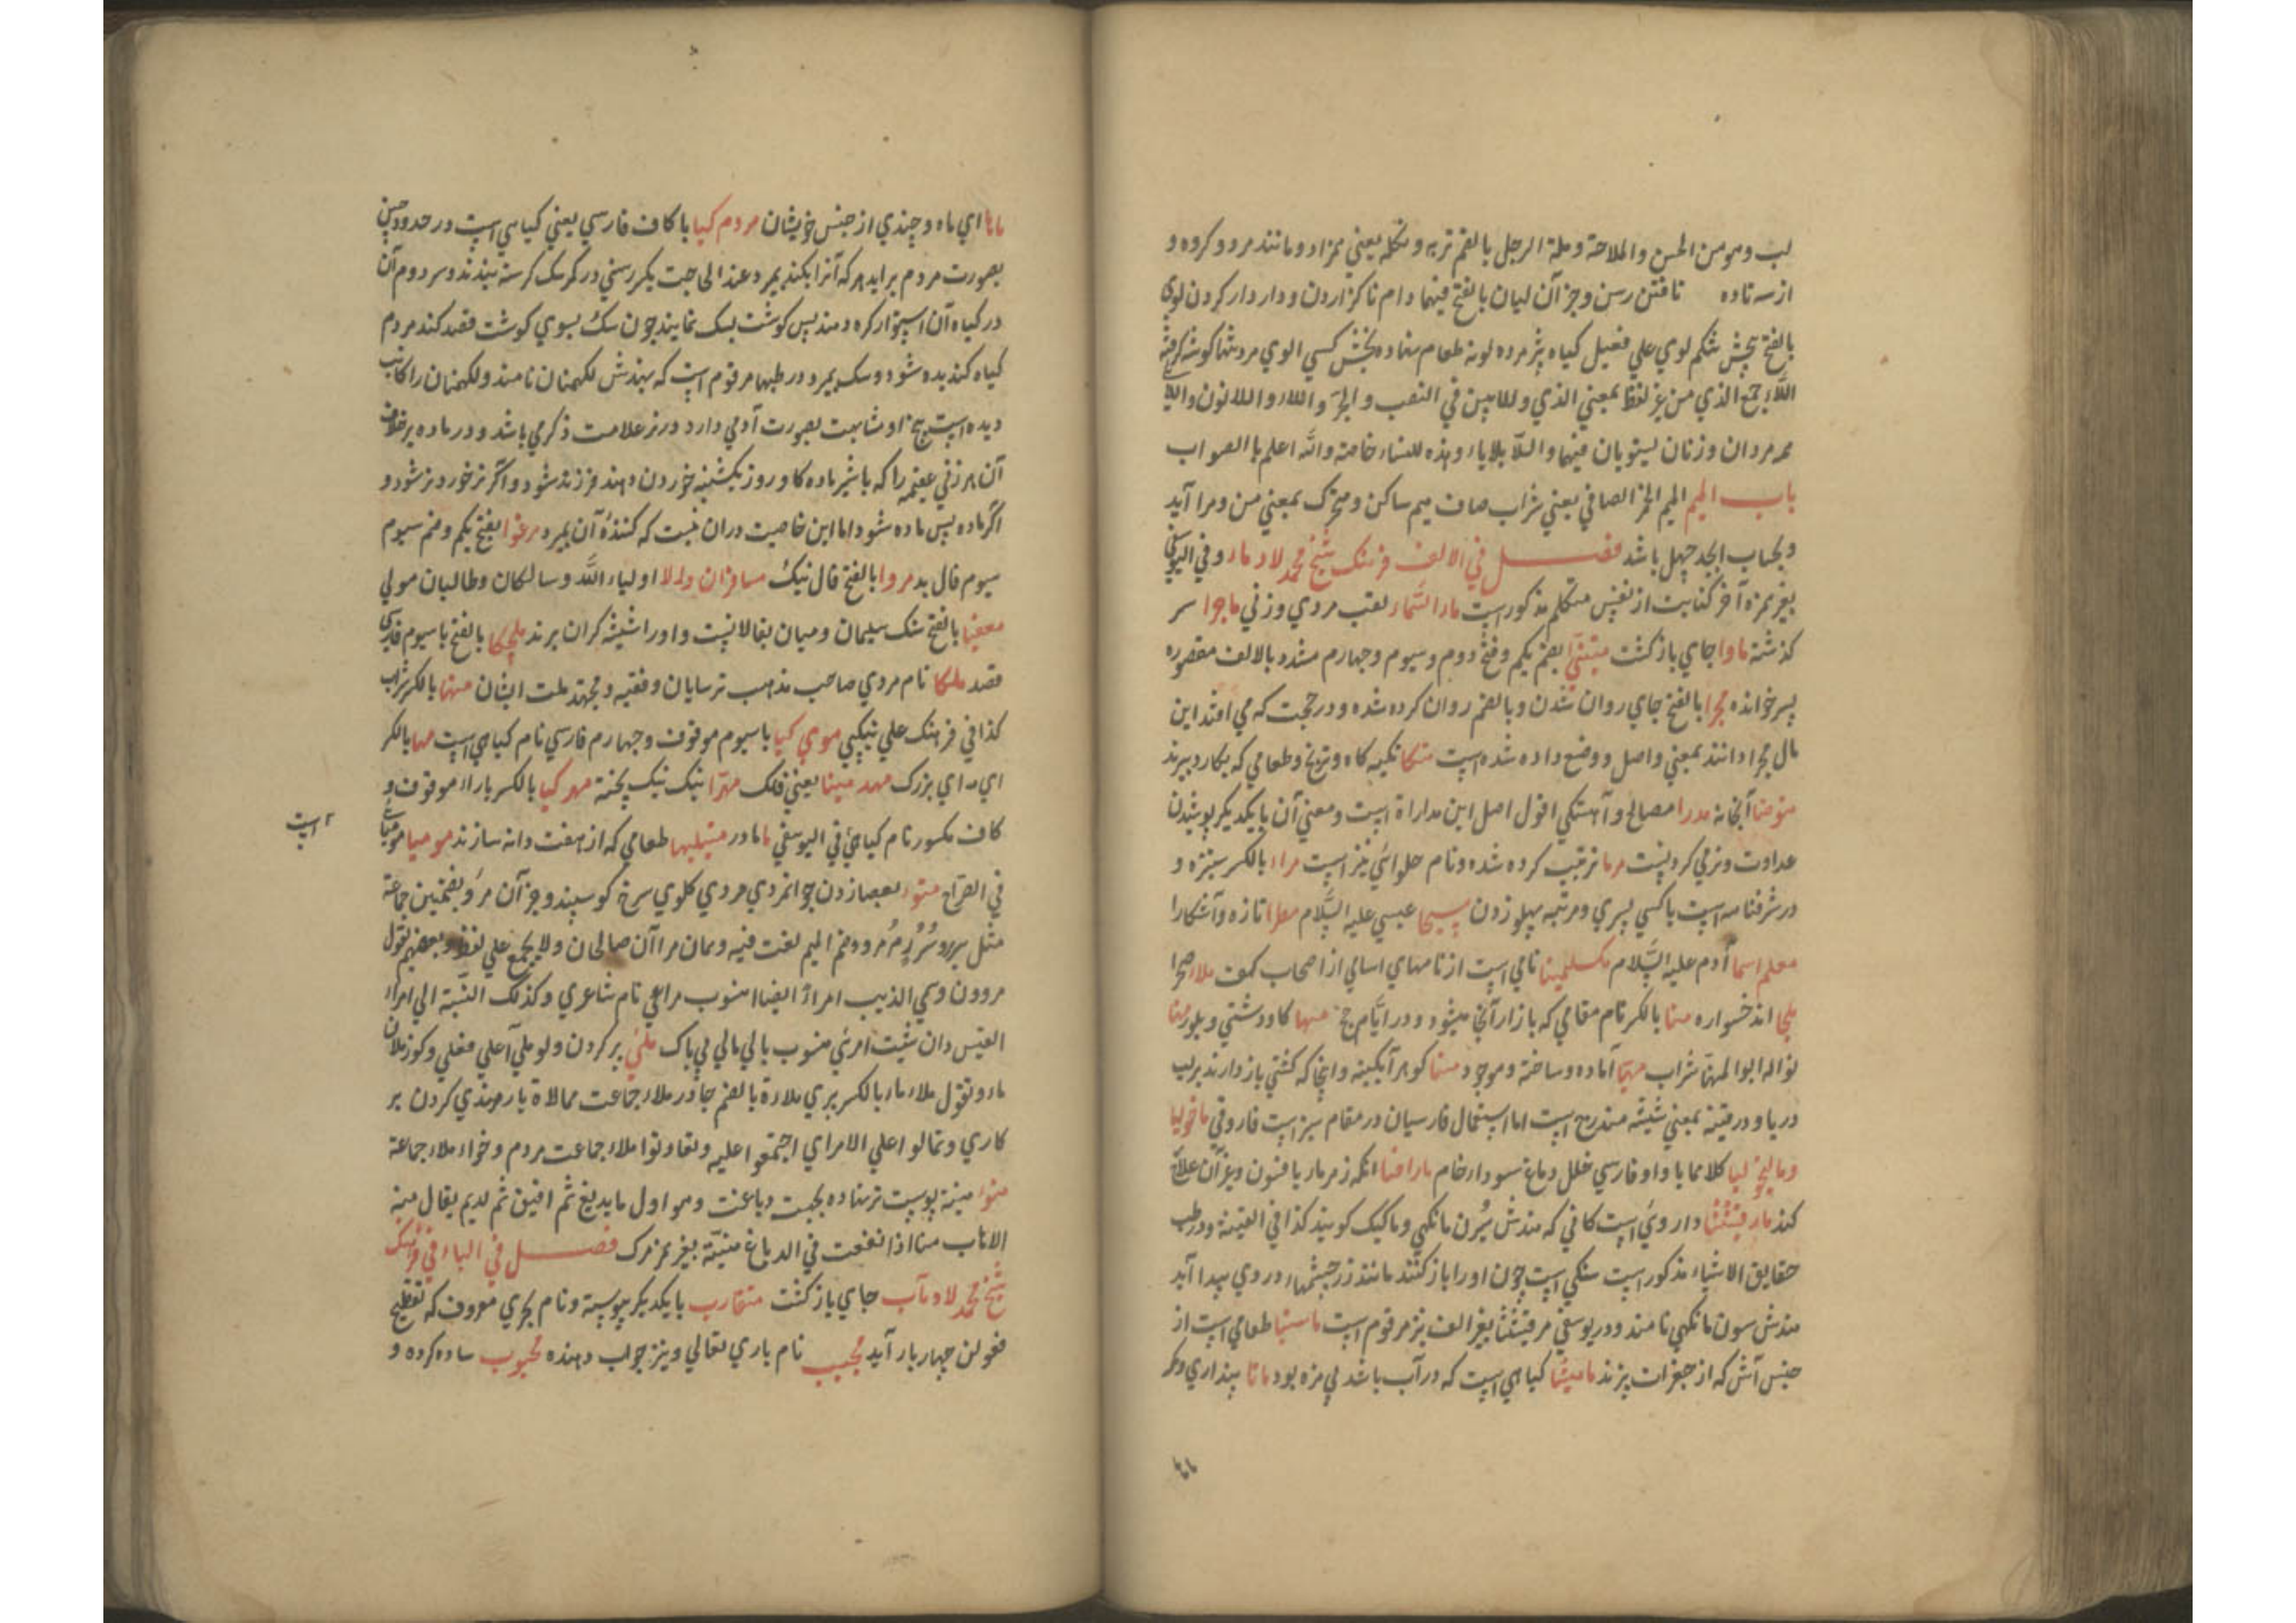 لب وهو من الحسن والملاحة وملة الرجل بالضم تربه وشكله یعنی همزاد و مانند مرد و کروه و
از سه تا ده تافتن رسن وجز آن لیان بالفتح فیهما دام ناکزاردن و داردار کردن لوی
بالفتح پیچش شکم لوی علی فعیل کیاه پژمرده لویه طعام نهاده بخش کسی الوی مرد تنها کوشه کرفته
اللاء جمع الذی من غیر لفظ بمعنی الذی و للایین فی النصب و الجر و اللاء و اللاءون و اللای
مردان و زنان لیستویان فیها و اللا بلا یاء و هذه للنساء خاصة والله اعلم بالصواب
باب المیم المیم الخمر الصافی یعنی شراب صاف میم ساکن و متحرک بمعنی من و مرا آید
و بحساب ابجد چهل باشد فصل فی الالف فرهنک شیخ محمد لاد ماء و فی الیوسفی
بغیر همزه آخر کنایت از نفس متکلم مذکور است ماء السماء لقب مردی و زنی ماجرا سر
کذشته ماوا جای باز کشت متبنّی بضم یکم و فتح دوم و سیوم و چهارم مشدد بالالف مقصوره
پسر خوانده مجرا بالفتح جای روان شدن و بالضم روان کرده شده و در حجت که می افتد این
مال مجرا دانند بمعنی واصل و وضع داده شده است متکا تکیه کاه و ترنج و طعامی که بکارد برند
متوضا آبخانه مدرا مصالح و آهستکی اقول اصل این مداراة است و معنی آن بایکدیکر پوشیدن
عداوت و نرمی کردنست مربا تربیت کرده شده و نام حلوائی نیز است مراء بالکسر ستیزه و
در شرفنامه است با کسی پسری و مرتبه پهلو زدن مسیحا عیسی علیه السلام مطرا تازه و آشکارا
معلم اسما آدم علیه السلام مکسلمینا نامی است از نامهای اسامی از اصحاب کهف ملاء صحرا
ملجا اند خسواره منا بالکسر نام مقامی که بازار آنجا میشود و در ایّام حج مها کاو دشتی و بلور مهنا
نواله ابوالمهنا شراب مهیّا آماده و ساخته و موجود مینا کوهر آبکینه و آنجا که کشتی باز دارند بر لب
دریا و در قنیه بمعنی شیشه مندرج است اما استعمال فارسیان در مقام سبز است فاروقی ماخولیا
و مالیخولیا کلاهما با واو فارسی خلل دماغ سودار خام مارافسا انکه زهر مار بافسون و غیر آن علاج
کند مارقشیثا داروئی است کانی که هندش سُرن مانکهی و ماکیک کویند کذا فی القنیة و در طب
حقایق الاشیاء مذکور است سنکی است چون او را باز کنند مانند زر چشمها در وی پیدا آید
هندش سون مانکهی نامند و در یوسفی مرقشیثا بغیر الف نیز مرقوم است ماستبا طعامی است از
جنس آش که از جغرات پزند مامیثا کیاهی است که در آب باشد بی مزه بود مانا پنداری و مکر
مانا ای ماه و چندی از جنس خویشان مردم کیا با کاف فارسی یعنی کیاهی است در حدود چین
بصورت مردم بر آید هر که آنرا بکند بمیرد عند الحاجت یکسر رسنی در کمر سک کرسنه ببندند و سر دوم آن
در کیاه آن استوار کره دهند پس کوشت بسک نمایند چون سک بسوی کوشت قصد کند مردم
کیاه کندیده شود و سک بمیرد در طبها مرقوم است که هندش لکهمنان نامند و لکهمنان را کاتب
دیده است بیخ او مشابهت بصورت آدمی دارد در نر علامت ذکر می باشد و در ماده بر خلاف
آن هر زنی عقیمه را که با شیر ماده کاو روز یکشنبه خوردن دهند فرزند شود و اکر نر خورد نر شود و
اکر ماده پس ماده شود اما این خاصیت در ان نیست که کنندهٔ آن بمیرد مرغوا بفتح یکم و ضم سیوم
سیوم فال بد مروا بالفتح فال نیک مسافران والا اولیاء الله و سالکان و طالبان مولی
بالفتح سنک سلیمان و میان بغالانیست و او را شیشه کران برند ملچکا بالفتح با سیوم فارسی
قصد ملکا نام مردی صاحب مذهب ترسایان و فقیه و مجتهد ملت ایشان مهنا بالکسر شراب
کذا فی فرهنک علی نیکپی موی کیا با سیوم موقوف و چهارم فارسی نام کیاهی است مها بالکسر
ای مه ای بزرک مهد مینا یعنی فلک مهرّا نیک نیک پخته مهر کیا بالکسر با راء موقوف و
کاف مکسور نام کیاهی فی الیوسفی ماما در طعامی که از هفت دانه سازند مومیا مومیائی
است
فی الصراح متوء بعصا زدن جوانمردی مردی کلوی سرخ کوسپند و جز آن مرُؤ بضمتین جماعة
مثل سریر و سُرُر مُر و ضم المیم لغت فیه و همان مراآن صالحان و لا یجمع علی لفظه و بعضهم یقول
مروون و سمی الذیب امراءً ایضا منسوب مراعی نام شاعری و کذلک النسبة الی امراء
القیس و ان شئت امرئی منسوب با لی مالی لی باک ملئ پر کردن و لو ملی آ علی فعلی و کوز ملآن
ماء و تقول ملاء ماء بالکسر پری ملاءة بالضم چادر ملاء جماعت ممالاة یارمندی کردن بر
کاری و تمالوا علی الامر ای اجتمعوا علیه و تعاونوا ملاء جماعت مردم و خواء ملاء جماعة
منوء منیئة پوست تر نهاده بجهت دباغت و هو اول ما یدبغ ثم افیق ثم ادیم یقال منه
الاناب مناا ذا انفعت فی الدباغ منیّة بغیر همز مرک فصل فی الباء فی فرهنک
شیخ محمد لاد مآب جای باز کشت متقارب بایکدیکر پیوسته و نام بحری معروف که تقطیع
فعولن چهار بار آید مجیب نام باری تعالی و نیز جواب دهنده محبوب ساده کرده و